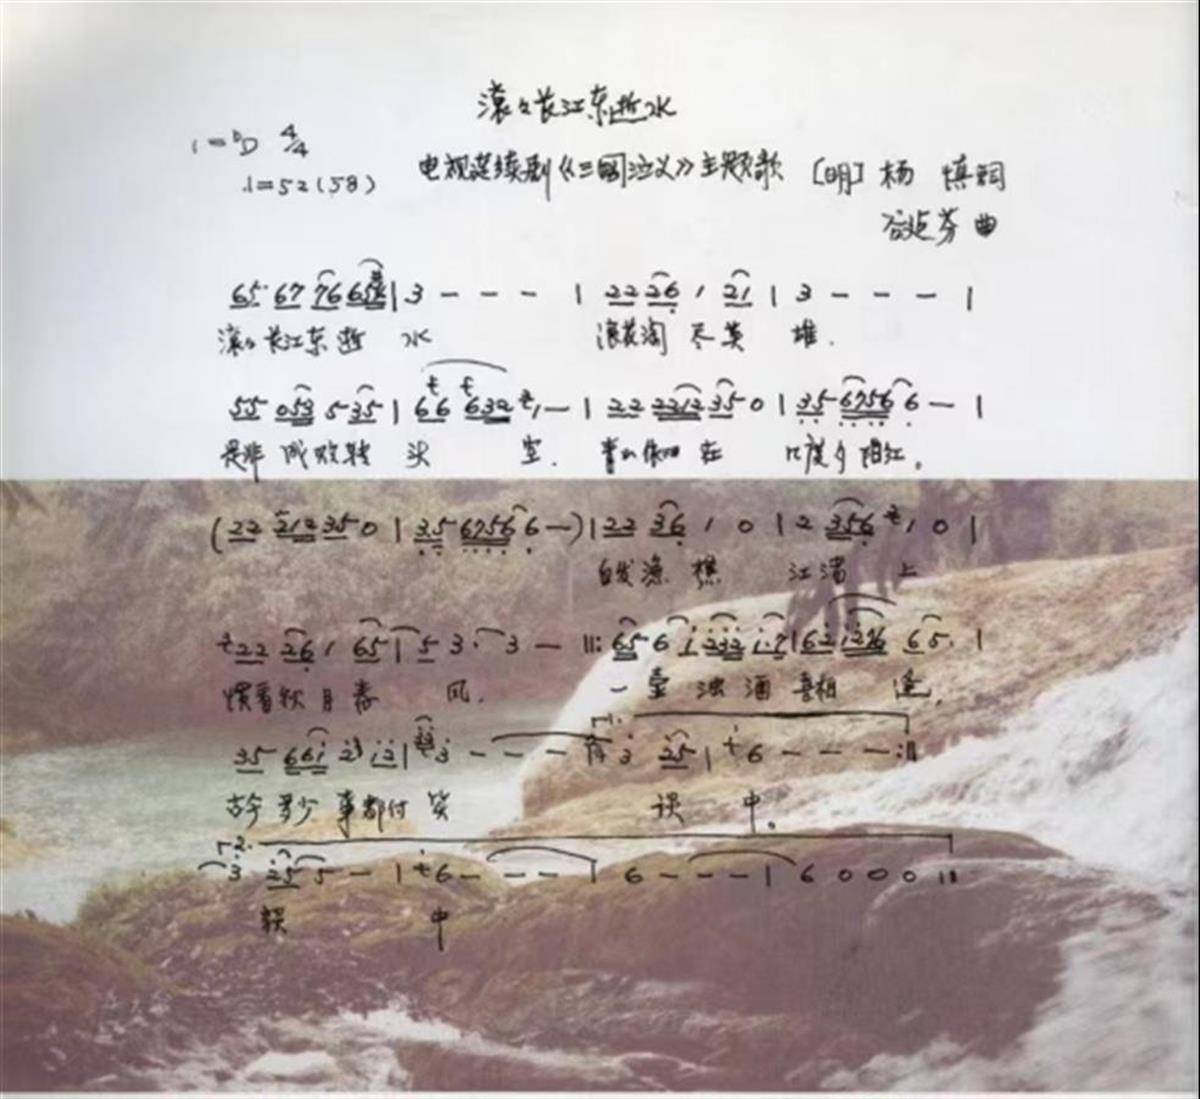 滚々长江东逝水
1=ᵇD 4/4
♩=52(58)
电视连续剧《三国演义》主题歌 [明] 杨 慎词
谷建芬 曲
65 67 76 65 | 3 - - - | 22 26 1 21 | 3 - - - |
滚々长江东逝 水 浪花淘 尽英 雄.
55 053 5 35 | 66 632 2 1 - | 22 2212 35 0 | 35 6756 6 - |
是非 成败转 头 空. 青山依旧 在 几度夕阳红。
(22 212 35 0 | 35 6756 6 -) | 22 36 1 0 | 2 356 2 1 0 |
白发渔 樵 江渚 上
22 26 1 65 | 5 3. 3 - ‖: 65 6 1 232 1·7 | 62 1276 65. |
惯看秋月春 风. 一壶 浊酒喜相 逢.
35 661 23 12 | 3 - - - 1. 3 25 | 6 - - - :‖
古今多少事都付 笑 谈 中。
2. 3 25 5 - | 6 - - - | 6 - - - | 6 0 0 0 ‖
谈 中